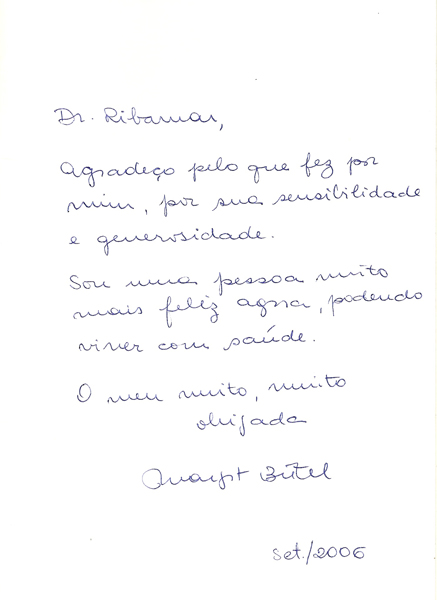 Dr. Ribamar,
Agradeço pelo que fez por
mim, por sua sensibilidade
e generosidade.
Sou uma pessoa muito
mais feliz agora, podendo
viver com saúde.
O meu muito, muito
obrigada
Set./2006